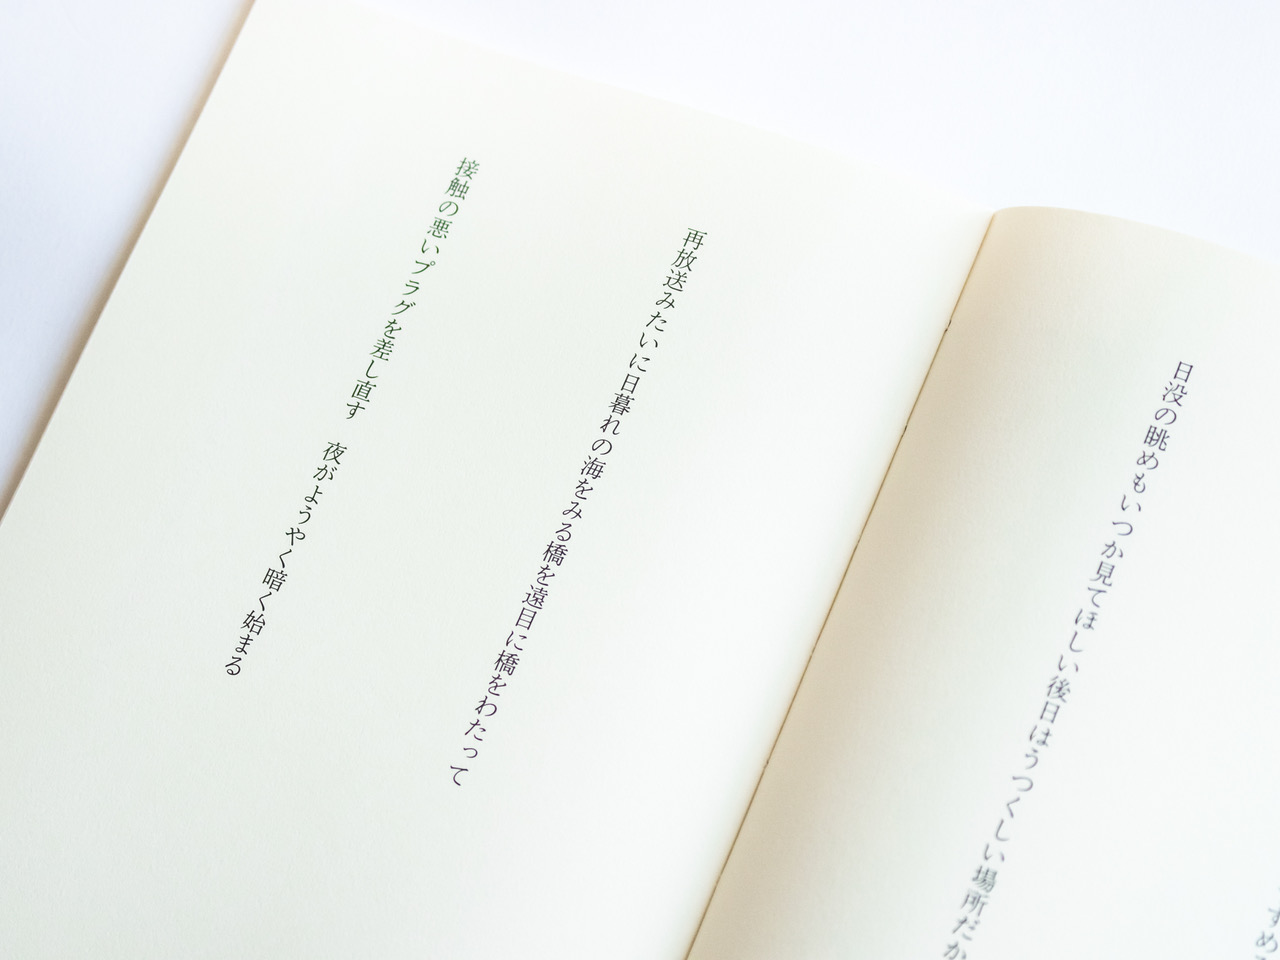 日没の眺めもいつか見てほしい後日はうつくしい場所だか
再放送みたいに日暮れの海をみる橋を遠目に橋をわたって
接触の悪いプラグを差し直す　夜がようやく暗く始まる